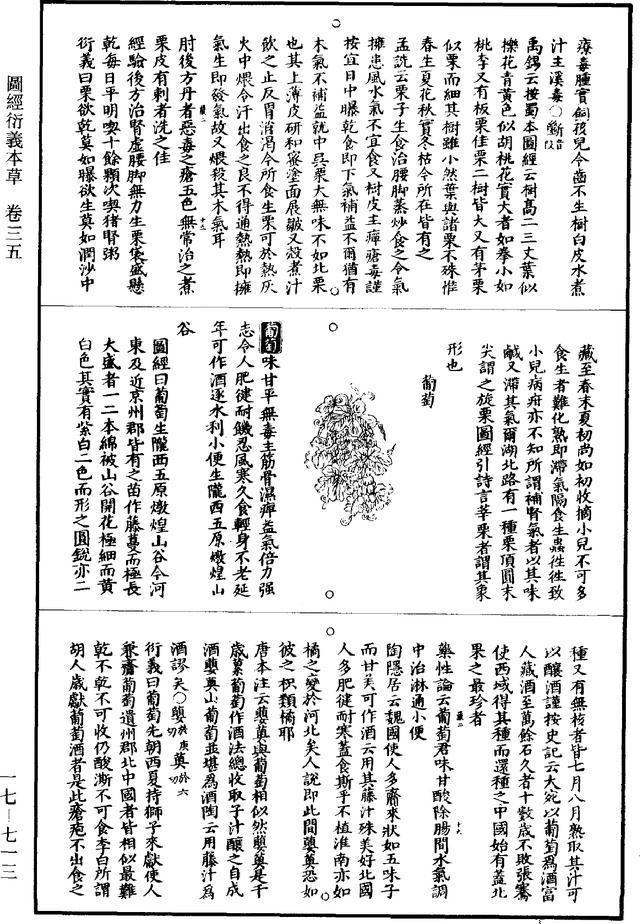 圖經衍義本草　卷三五
一七－七一三
療毒腫實飼孩兒令齒不生樹白皮水煮
汁主溪毒○斵
禹錫云按蜀本圖經云樹高二三丈葉似
櫟花青黃色似胡桃花實大者如拳小如
桃李又有板栗佳栗二樹皆大又有茅栗
似栗而細其樹雖小然葉與諸栗不殊惟
春生夏花秋實冬枯今所在皆有之
孟詵云栗子生食治腰脚蒸炒食之令氣
擁患風水氣不宜食又樹皮主癉瘡毒謹
按宜日中曝乾食即下氣補益不爾猶有
木氣不補益就中吳栗大無味不如北栗
也其上薄皮研和蜜塗面展皺又殼煮汁
飲之止反胃消渴今所食生栗可於熱灰
火中煨令汗出食之良不得通熱熱即擁
氣生即發氣故又煨殺其木氣耳
肘後方丹者惡毒之瘡五色無常治之煮
栗皮有刺者洗之佳
經驗後方治腎虛腰脚無力生栗袋盛懸
乾每日平明喫十餘顆次喫猪腎粥
衍義曰栗欲乾莫如曝欲生莫如潤沙中
藏至春末夏初尚如初收摘小兒不可多
食生者難化熟即滯氣隔食生蟲徃徃致
小兒病疳亦不知所謂補腎氣者以其味
鹹又滯其氣爾湖北路有一種栗頂圓末
尖謂之旋栗圖經引詩言莘栗者謂其象
形也
葡萄
葡萄味甘平無毒主筋骨濕痹益氣倍力強
志令人肥徤耐饑忍風寒久食輕身不老延
年可作酒逐水利小便生隴西五原燉煌山
谷
圖經曰葡萄生隴西五原燉煌山谷今河
東及近京州郡皆有之苗作藤蔓而極長
大盛者一二本綿被山谷開花極細而黃
白色其實有紫白二色而形之圓銳亦二
種又有無核者皆七月八月熟取其汁可
以釀酒謹按史記云大宛以葡萄爲酒富
人藏酒至萬餘石久者十數歲不敗張騫
使西域得其種而還種之中國始有蓋北
果之最珍者
藥性論云葡萄君味甘酸除腸間水氣調
中治淋通小便
陶隱居云魏國使人多齎來狀如五味子
而甘美可作酒云用其藤汁殊美好北國
人多肥徤耐寒蓋食斯乎不植淮南亦如
橘之變於河北矣人說即此間蘡薁恐如
彼之枳類橘耶
唐本注云蘡薁與葡萄相似然蘡薁是千
歲蔂葡萄作酒法總收取子汁釀之自成
酒蘡薁山葡萄並堪爲酒陶云用藤汁爲
酒謬矣○蘡於庚切薁於六切
衍義曰葡萄先朝西夏持獅子來獻使人
兼齎葡萄遺州郡北中國者皆相似最難
乾不乾不可收仍酸澌不可食李白所謂
胡人歲獻葡萄酒者是此瘡疱不出食之